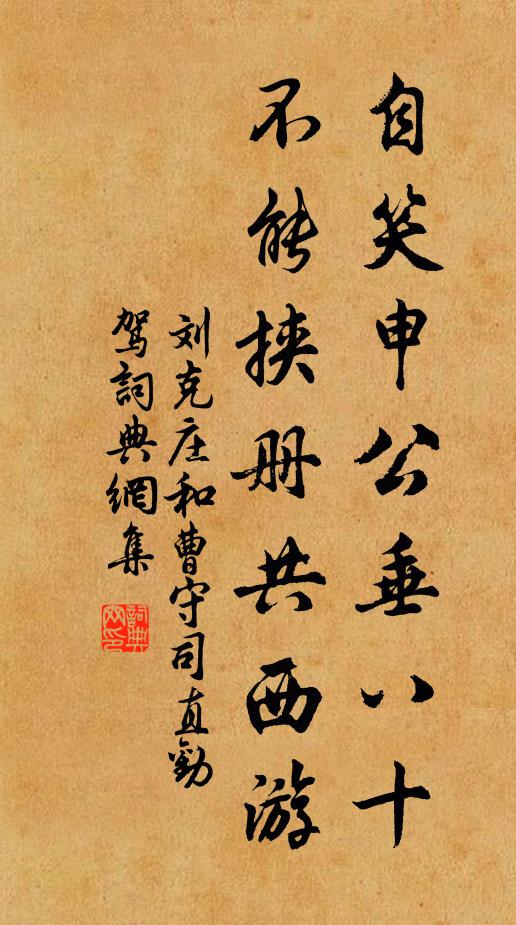 自笑申公垂八十
不能挟册共西游
刘克庄和曹守司直劝
驾詞典網集
詞典网印